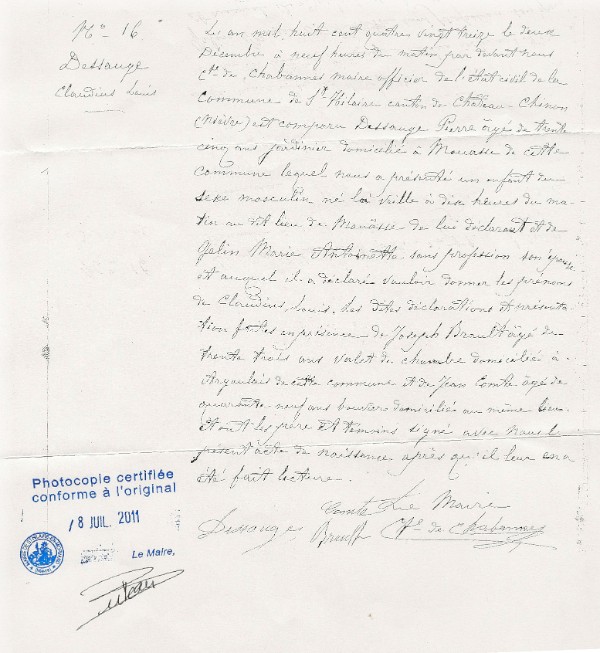 No 16.
Dessauge
Claudius Louis
L'an mil huit cent quatre vingt treize le deux
Décembre à neuf heures du matin par devant nous
Cte de Chabannes maire officier de l'état civil de la
commune de St Hilaire canton de Château-Chinon
(Nièvre) est comparu Dessauge Pierre âgé de trente
cinq ans jardinier domicilié à Mouasse de cette
commune lequel nous a présenté un enfant du
sexe masculin né la veille à dix heures du ma-
tin au dit lieu de Mouasse de lui déclarant et de
Gelin Marie Antoinette sans profession son épouse
et auquel il a déclaré vouloir donner les prénoms
de Claudius Louis. Les dites déclarations et présenta-
tion faites en présence de Joseph Brault âgé de
trente trois ans valet de chambre domicilié à
de cette commune et de Jean Comte âgé de
quarante-neuf ans bouvier domicilié au même lieu
et ont les père et témoins signé avec nous le
présent acte de naissance après qu'il leur en a
été fait lecture.
Comte Le Maire
Dessauge Brault Cte de Chabannes
Photocopie certifiée
conforme à l'original
18 JUIL. 2011
Le Maire,